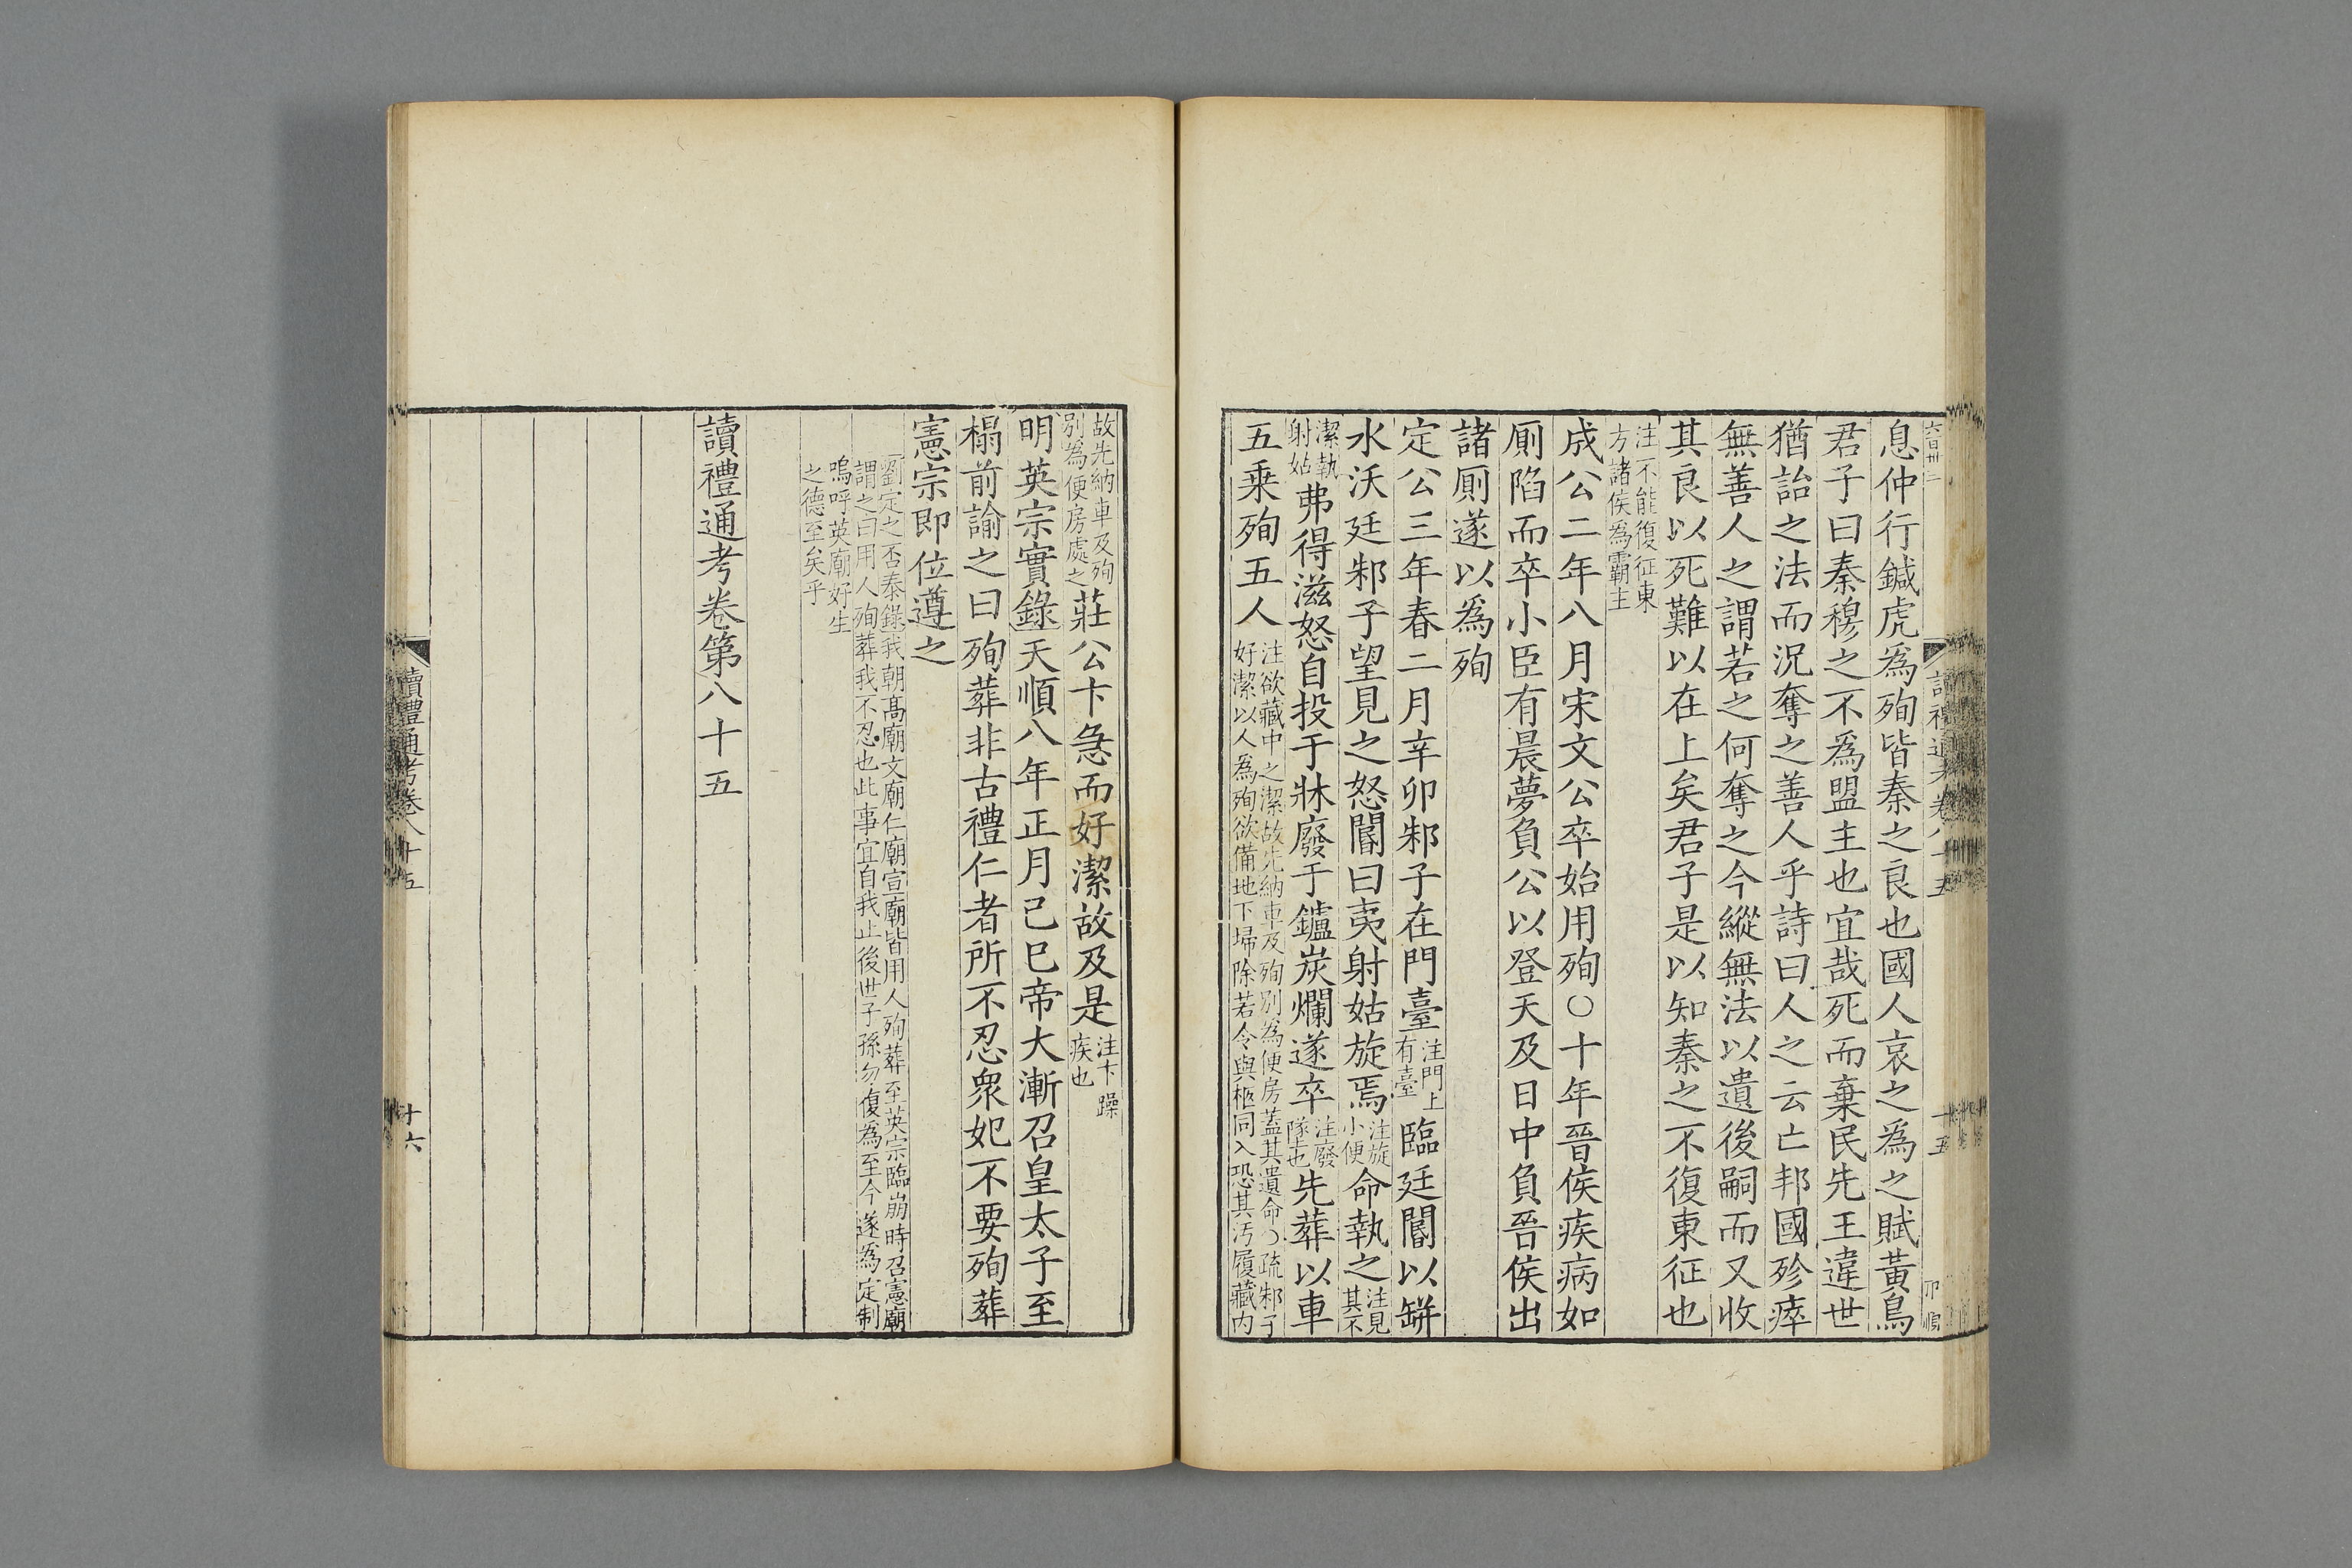 息仲行鍼虎爲殉皆秦之良也國人哀之爲之賦黃鳥
君子曰秦穆之不爲盟主也宜哉死而棄民先王違世
猶詒之法而況奪之善人乎詩曰人之云亡邦國殄瘁
無善人之謂若之何奪之今縱無法以遺後嗣而又收
其良以死難以在上矣君子是以知秦之不復東征也
注不能復征東
方諸侯爲霸主
成公二年八月宋文公卒始用殉○十年晉侯疾病如
廁陷而卒小臣有晨夢負公以登天及日中負晉侯出
諸廁遂以爲殉
定公三年春二月辛卯邾子在門臺注門上有臺臨廷閽以缾
水沃廷邾子望見之怒閽曰夷射姑旋焉注旋小便命執之注見其不
潔執射姑弗得滋怒自投于牀廢于鑪炭爛遂卒注廢隊也先葬以車
五乘殉五人注欲藏中之潔故先納車及殉別爲便房蓋其遺命○疏邾子
好潔以人爲殉欲備地下埽除若令與柩同入恐其汚履藏內
故先納車及殉
別爲便房處之莊公卞急而好潔故及是注卞躁疾也
明英宗實錄天順八年正月己巳帝大漸召皇太子至
榻前諭之曰殉葬非古禮仁者所不忍衆妃不要殉葬
憲宗卽位遵之
劉定之否泰錄我朝高廟文廟仁廟宣廟皆用人殉葬至英宗臨崩時召憲廟
謂之曰用人殉葬我不忍也此事宜自我止後世子孫勿復爲至今遂爲定制
嗚呼英廟好生
之德至矣乎
讀禮通考卷第八十五
讀禮通考卷八十五
十六